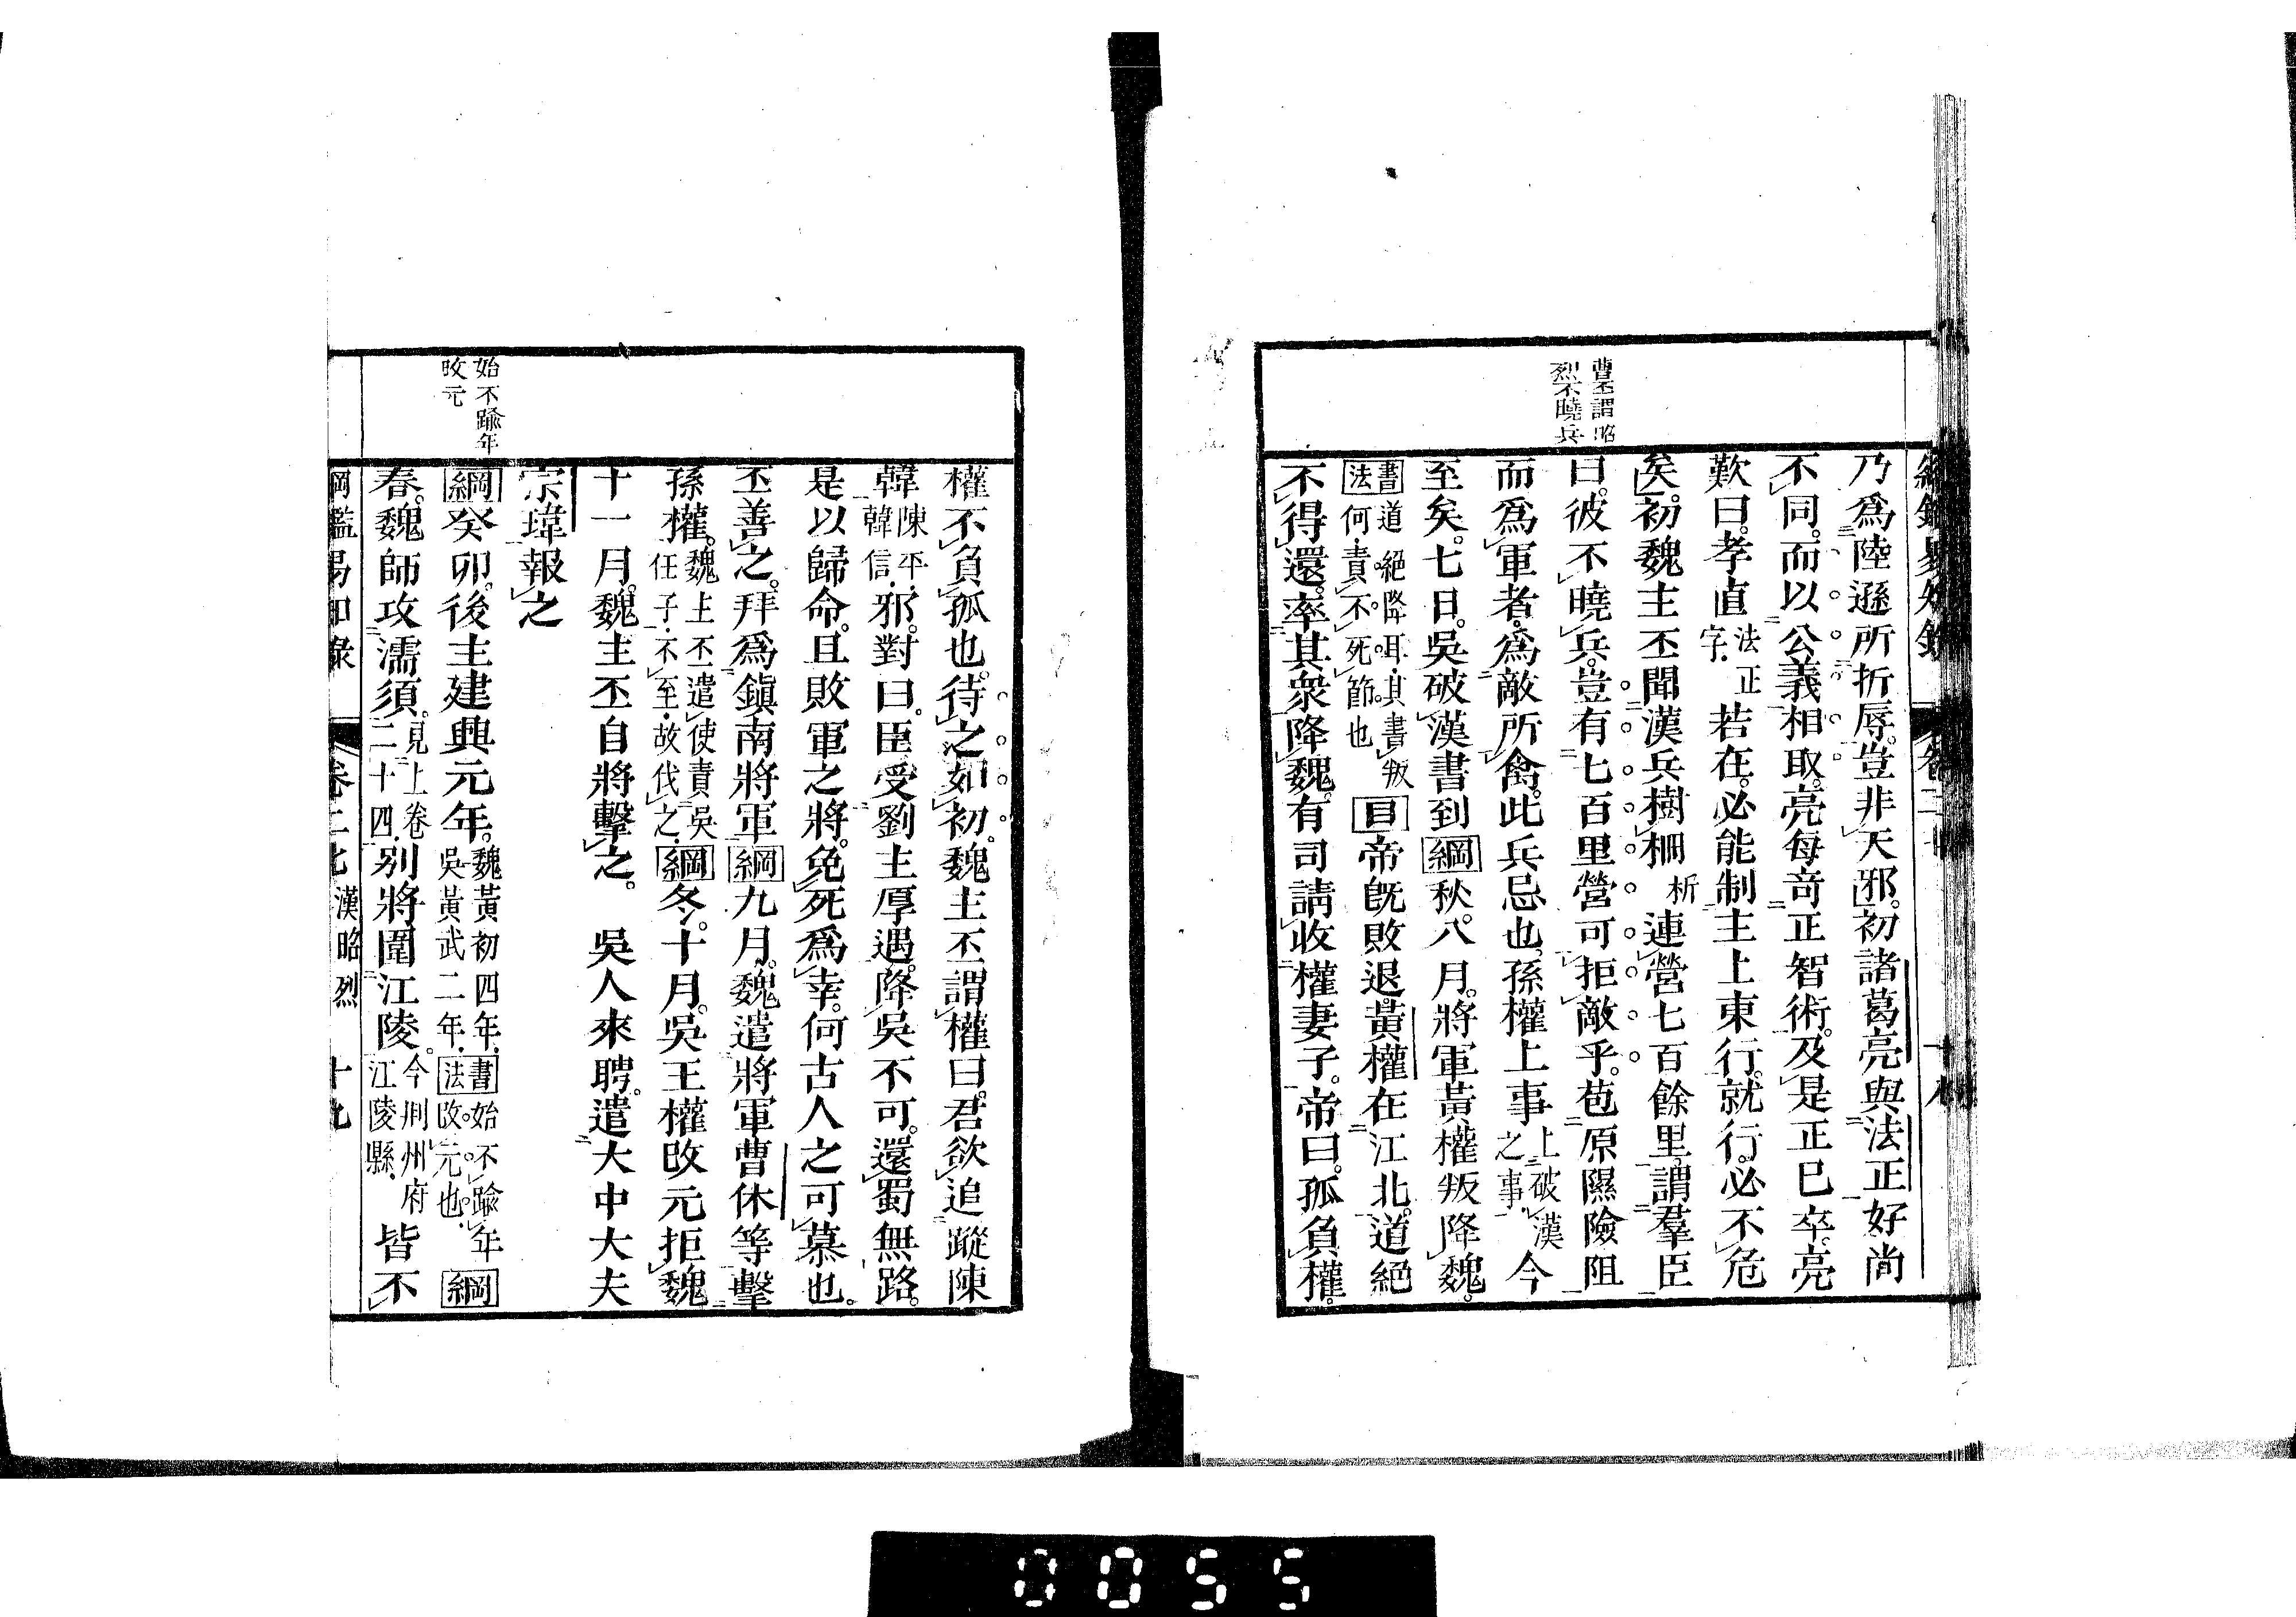 綱鑑易知錄 卷二十
曹丕謂昭
烈不曉兵
乃爲陸遜所折辱。豈非天邪。初諸葛亮與法正好尚
不同。而以公義相取。亮每奇正智術。及是正已卒。亮
歎曰。孝直法正字。若在。必能制主上東行。就行。必不危
矣。初魏主丕聞漢兵樹柵析連營七百餘里。謂羣臣
曰。彼不曉兵。豈有七百里營可拒敵乎。苞原隰險阻
而爲軍者。爲敵所禽。此兵忌也。孫權上事上破漢之事。今
至矣。七日。吳破漢書到綱秋。八月。將軍黃權叛降魏。
書法道絕降耳。其書叛何。責不死節也目帝旣敗退。黃權在江北。道絕
不得還。率其衆降魏。有司請收權妻子。帝曰。孤負權。
權不負孤也。待之如初。魏主丕謂權曰。君欲追蹤陳
韓陳平。韓信。邪。對曰。臣受劉主厚遇。降吳不可。還蜀無路。
是以歸命。且敗軍之將。免死爲幸。何古人之可慕也。
丕善之。拜爲鎭南將軍綱九月。魏遣將軍曹休等擊
孫權。魏主丕遣使責吳任子。不至。故伐之。綱冬。十月。吳王權改元拒魏
十一月。魏主丕自將擊之。 吳人來聘。遣大中大夫
宗瑋報之
始不踰年
改元
綱癸卯。後主建興元年。魏黃初四年。吳黃武二年。書法始不踰年改元也。綱
春。魏師攻濡須。見上卷二十四。別將圍江陵。今荆州府江陵縣。皆不
綱鑑易知錄 卷二十 漢昭烈 十九
0055